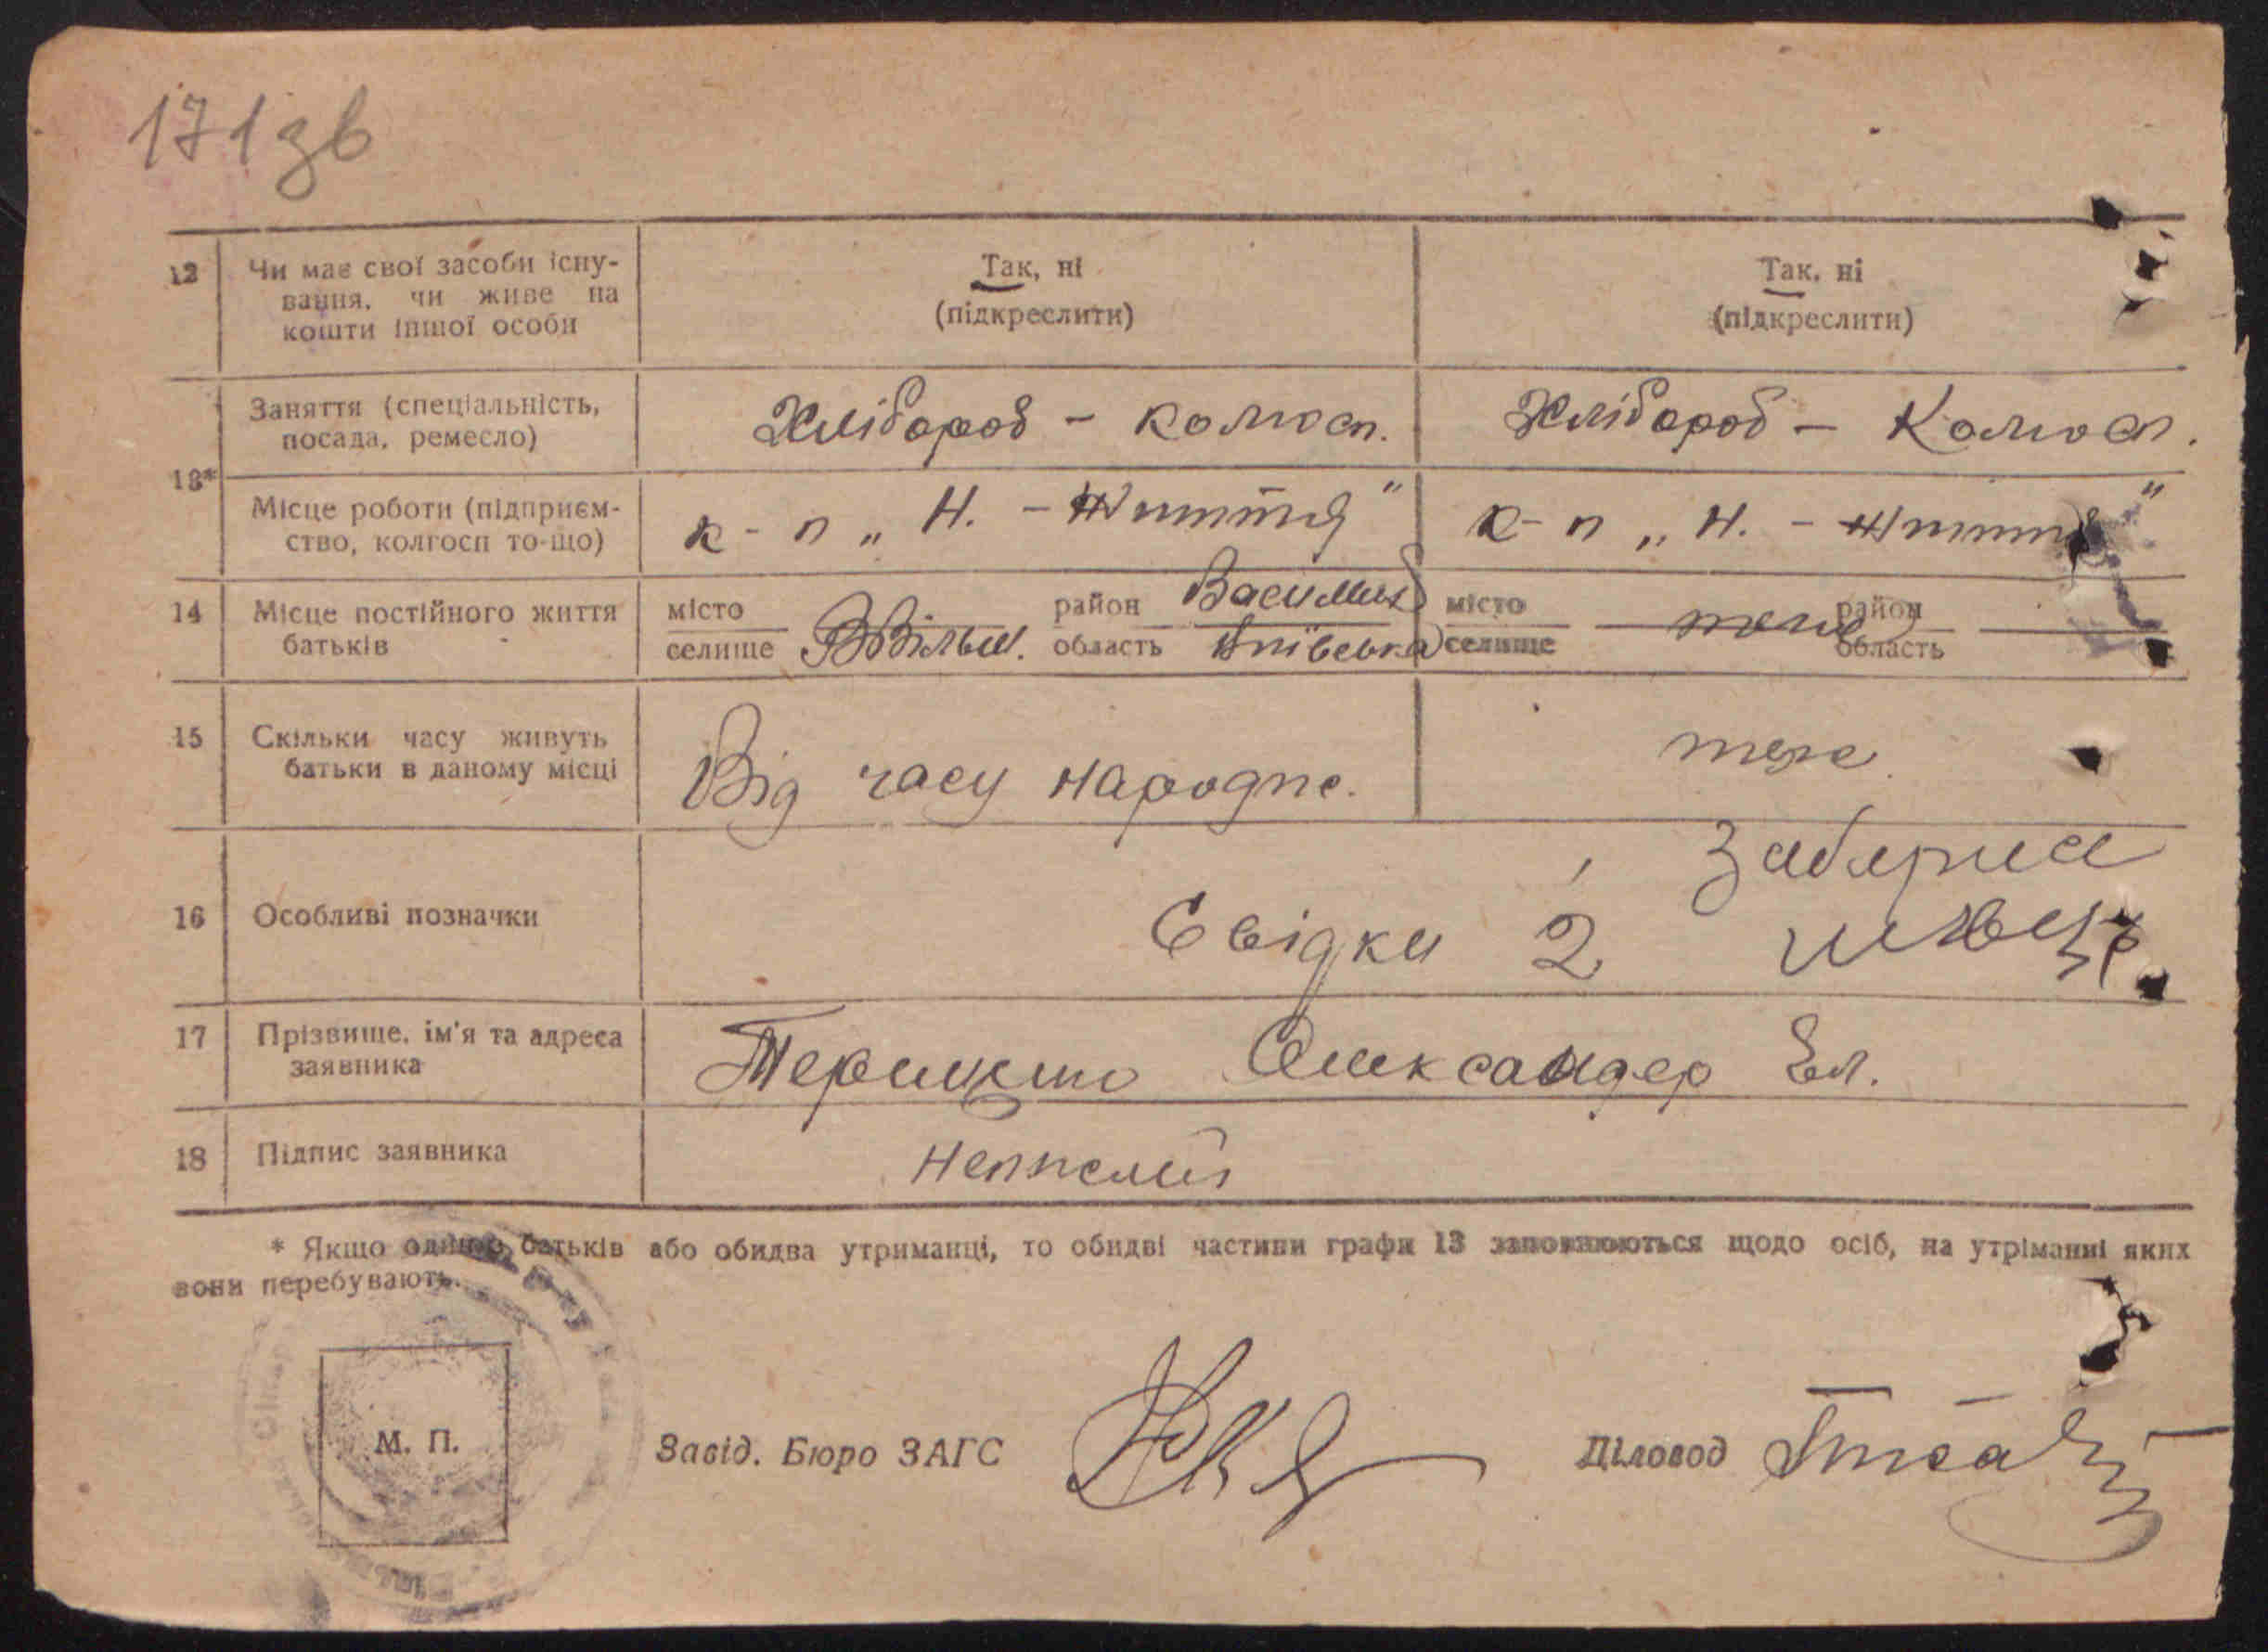 171зв
12 Чи має свої засоби існу-
вання, чи живе на
кошти іншої особи
Так, ні
(підкреслити)
Так, ні
(підкреслити)
13*
Заняття (спеціальність,
посада, ремесло)
Хлібороб - колгосп.
Хлібороб - Колгосп.
Місце роботи (підприєм-
ство, колгосп то-що)
к-п „Н. - Життя"
к-п „Н. - Життя"
14 Місце постійного життя
батьків
місто
селище
район Васильк
область Київська
місто
селище
теж
район
область
15 Скільки часу живуть
батьки в даному місці
Від часу народже.
теж.
16 Особливі позначки
Свідки 2
17 Прізвище, ім'я та адреса
заявника
Олександер Ел.
18 Підпис заявника
Неписьмен
* Якщо один з батьків або обидва утриманці, то обидві частини графи 13 заповнюються щодо осіб, на утріманні яких
вони перебувають.
М. П.
Завід. Бюро ЗАГС
Діловод